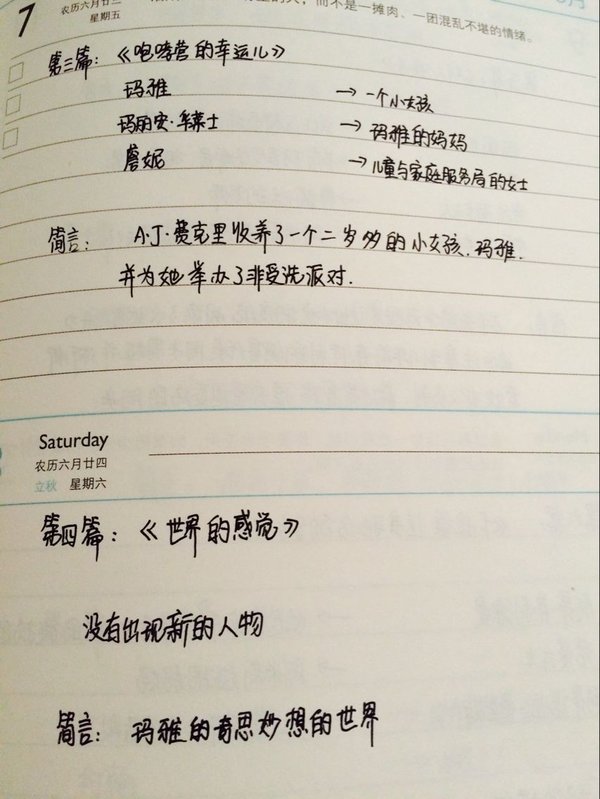 7
农历六月廿三
星期五
而不是一摊肉、一团混乱不堪的情绪。
第三篇：《咆哮营的幸运儿》
玛雅 → 一个小女孩
玛丽安·华莱士 → 玛雅的妈妈
詹妮 → 儿童与家庭服务局的女士
简言： A·J·费克里收养了一个二岁多的小女孩.玛雅.
并为她举办了非受洗派对.
Saturday
农历六月廿四
立秋 星期六
第四篇：《世界的感觉》
没有出现新的人物
简言：玛雅的奇思妙想的世界